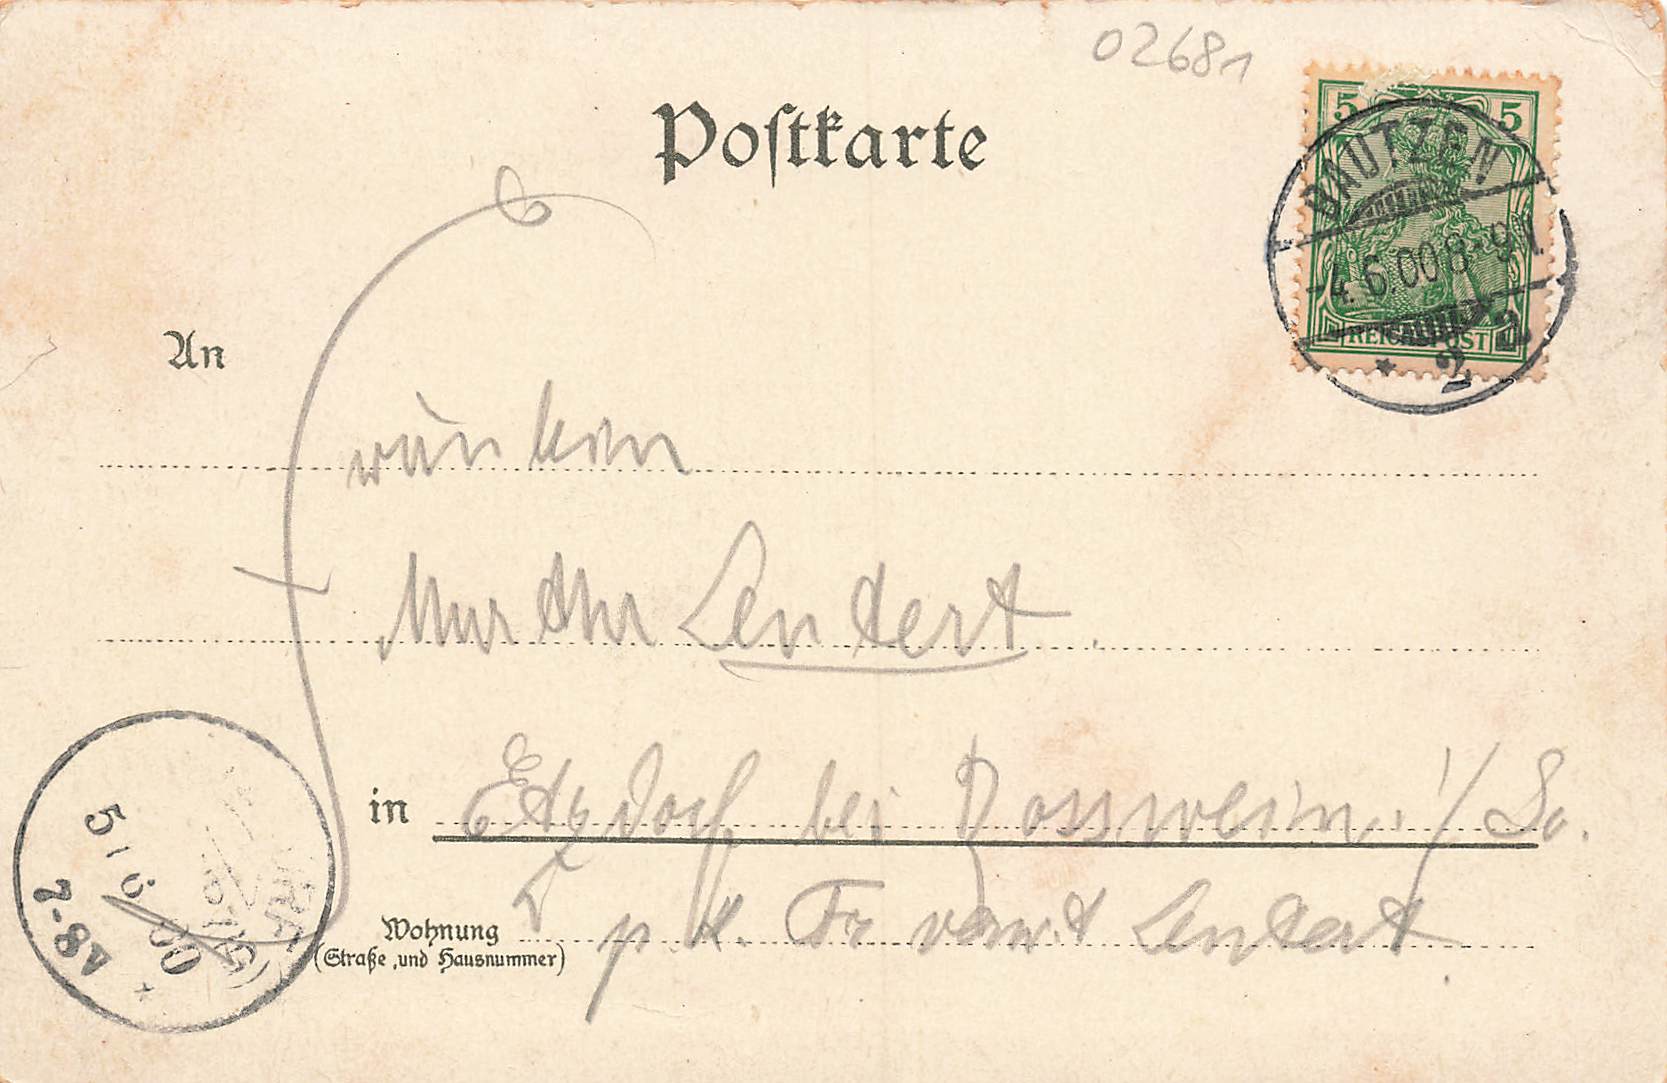 02681
Postkarte
5 5
BAUTZEN
4.6.00 8-9 V.
REICHSPOST
* 2
An
Lendert
in Etzdorf bei Rosswein i/Sa.
Wohnung
(Straße und Hausnummer)
p. Fr verw. Lendert
5 6 00
7-8V